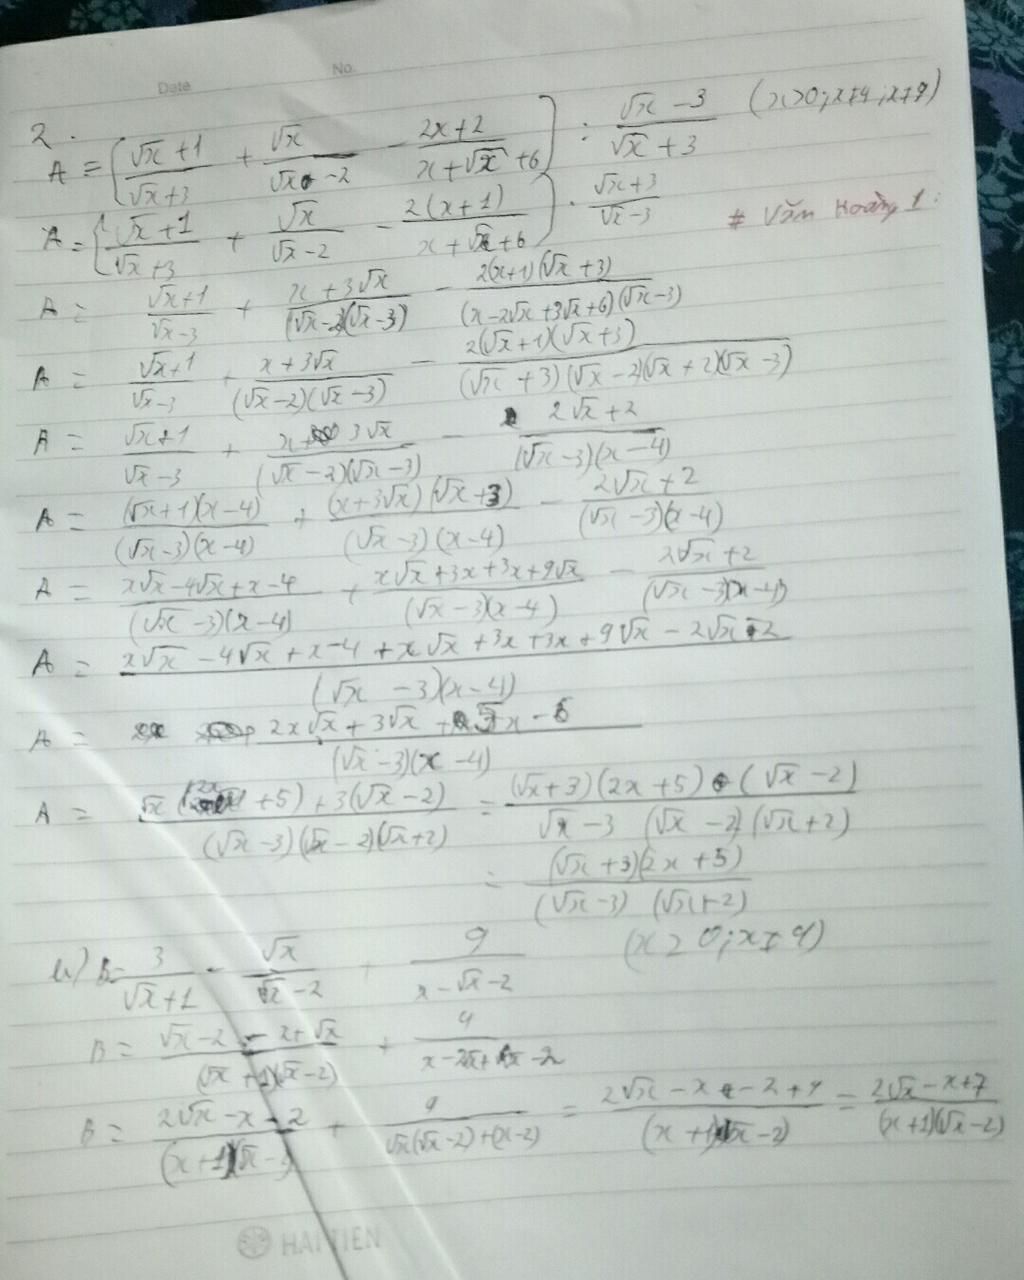 Date No.
2.
A = [(√x + 1)/(√x + 3) + √x/(√x - 2) - (2x + 2)/(x + √x + 6)] : (√x - 3)/(√x + 3) (x>0; x≠4; x≠9)
A = {(√x + 1)/(√x + 3) + √x/(√x - 2) - 2(x + 1)/(x + √x + 6)} . (√x + 3)/(√x - 3) # Văn Hoàng 1:
A = (√x + 1)/(√x - 3) + (x + 3√x)/((√x - 2)(√x - 3)) - 2(x+1)(√x + 3)/((x - 2√x + 3√x + 6)(√x - 3))
A = (√x + 1)/(√x - 3) + (x + 3√x)/((√x - 2)(√x - 3)) - 2(√x + 1)(√x + 3)/((√x + 3)(√x - 2)(√x + 2)(√x - 3))
A = (√x + 1)/(√x - 3) + (x + 3√x)/((√x - 2)(√x - 3)) - (2√x + 2)/((√x - 3)(x - 4))
A = (√x + 1)(x - 4)/((√x - 3)(x - 4)) + (x + 3√x)(√x + 3)/((√x - 3)(x - 4)) - (2√x + 2)/((√x - 3)(x - 4))
A = (x√x - 4√x + x - 4)/((√x - 3)(x - 4)) + (x√x + 3x + 3x + 9√x)/((√x - 3)(x - 4)) - (2√x + 2)/((√x - 3)(x - 4))
A = (x√x - 4√x + x - 4 + x√x + 3x + 3x + 9√x - 2√x - 2)/((√x - 3)(x - 4))
A = (2x√x + 3√x + 5x - 6)/((√x - 3)(x - 4))
A = (√x (2x + 5) + 3(√x - 2))/((√x - 3)(√x - 2)(√x + 2)) = (√x + 3)(2x + 5) (√x - 2)/(√x - 3 (√x - 2)(√x + 2))
= (√x + 3)(2x + 5)/((√x - 3) (√x + 2))
B = 3/(√x + 1) - √x/(√x - 2) + 9/(x - √x - 2) (x ≥ 0; x ≠ 4)
B = (√x - 2 - x + √x)/((√x + 1)(√x - 2)) + 9/(x - 2√x + √x - 2)
B = (2√x - x - 2)/((x + 1)(√x - 2)) + 9/(√x(√x - 2) + (x - 2)) = (2√x - x - 2 + 9)/((x + 1)(√x - 2)) = (2√x - x + 7)/((x + 1)(√x - 2))
HAI TIEN